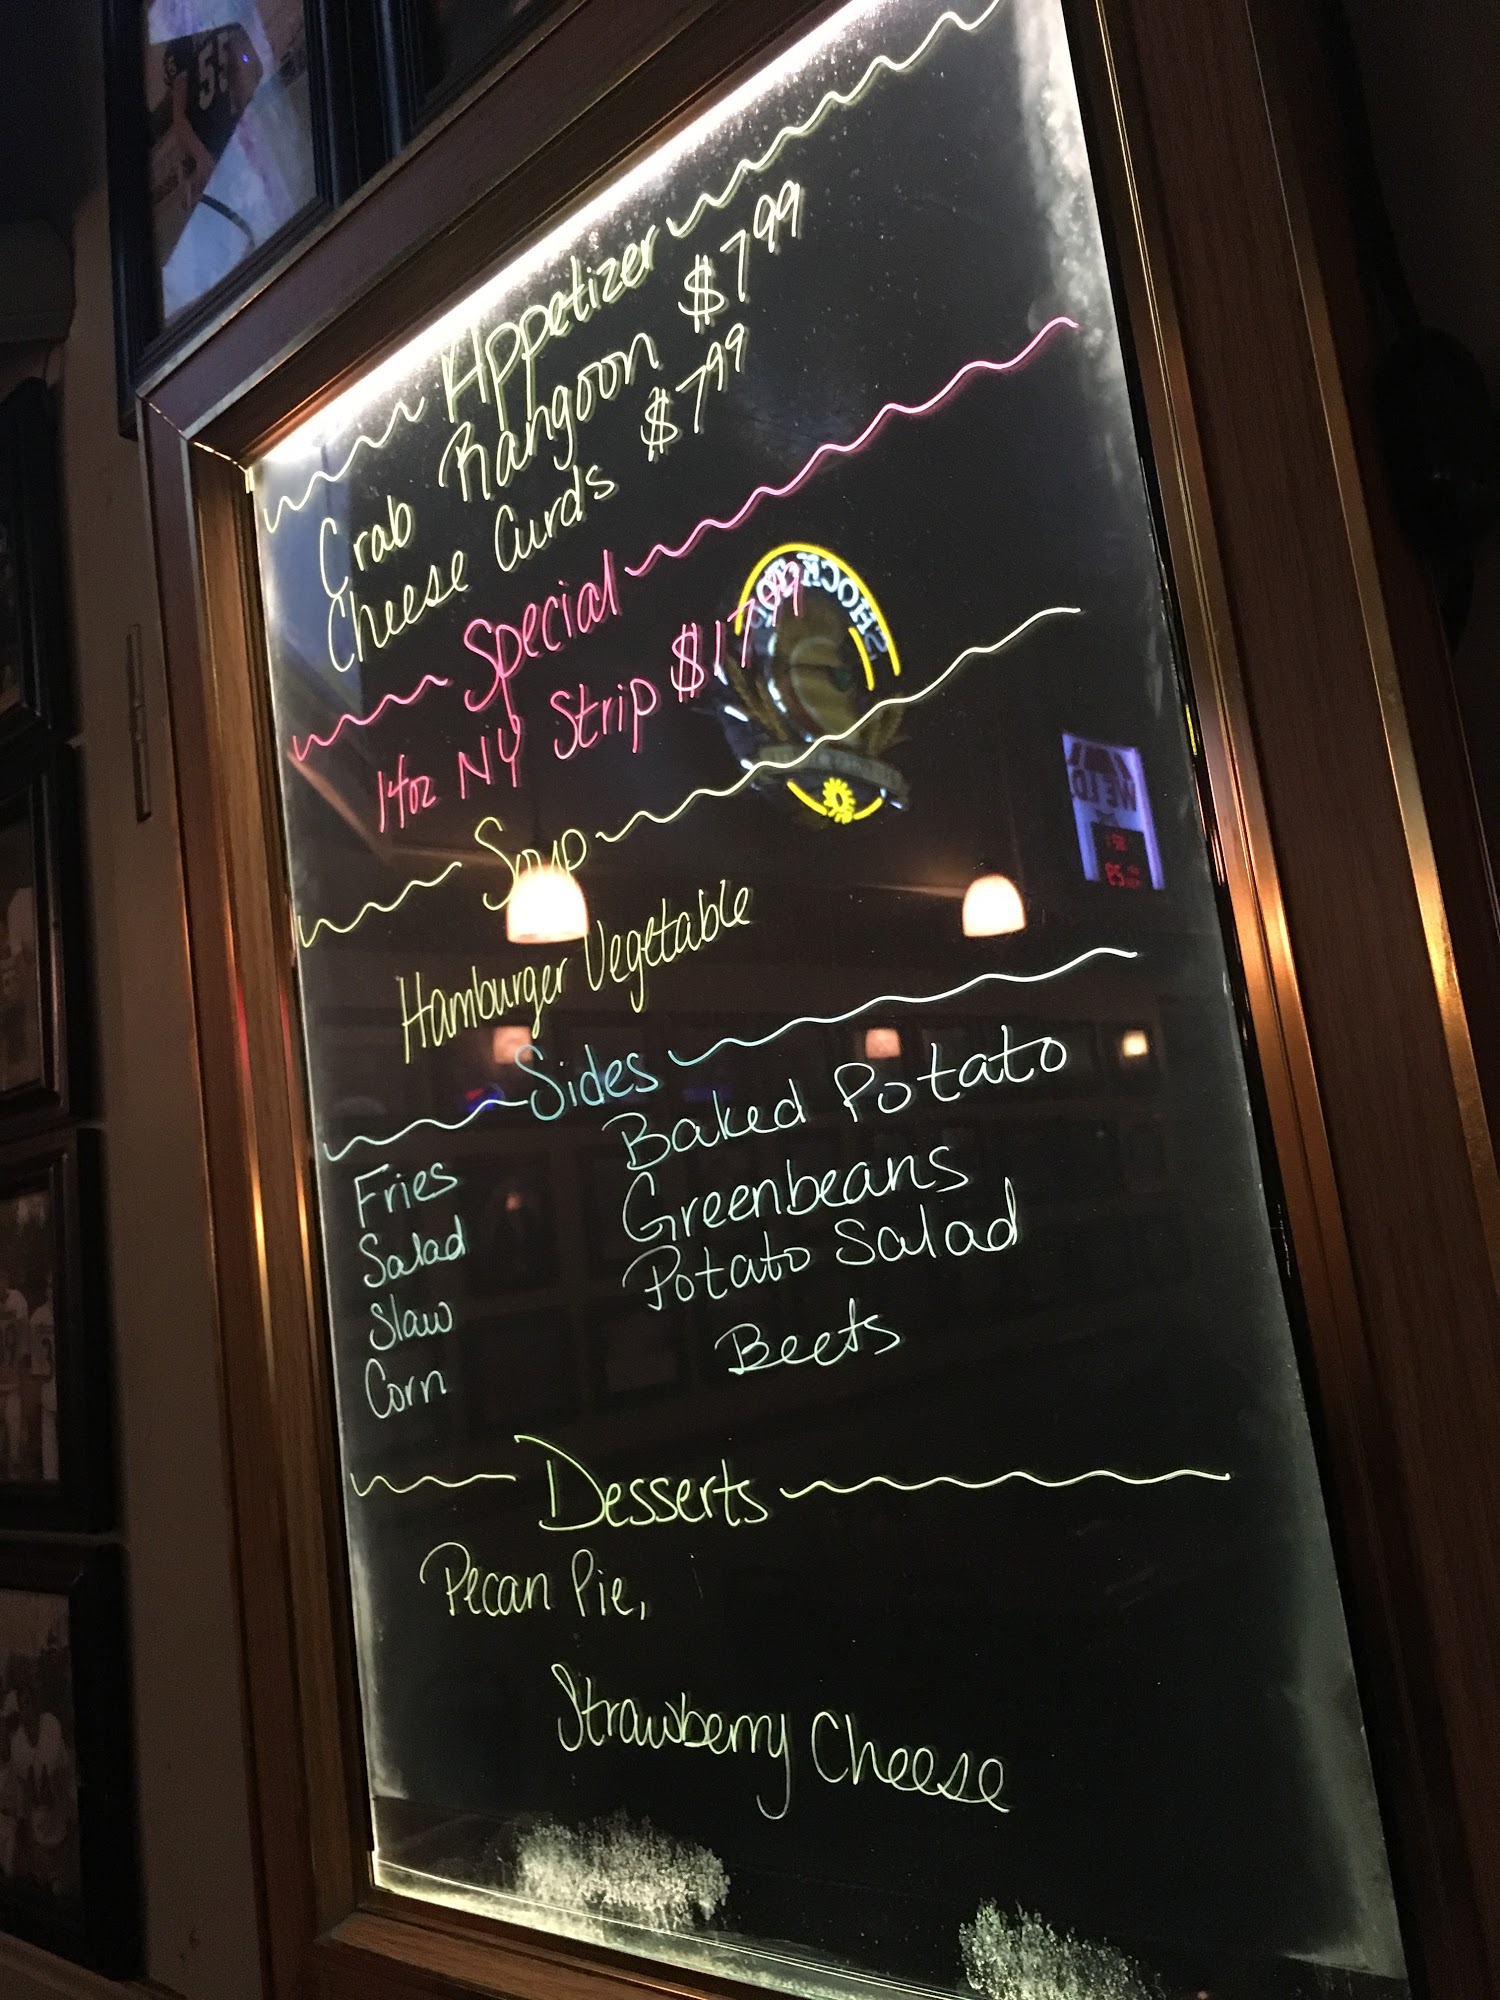 Appetizer
Crab Rangoon $7.99
Cheese Curds $7.99
Special
14oz NY Strip $17.99
Soup
Hamburger Vegetable
Sides
Fries Baked Potato
Salad Greenbeans
Slaw Potato Salad
Corn Beets
Desserts
Pecan Pie,
Strawberry Cheese
55